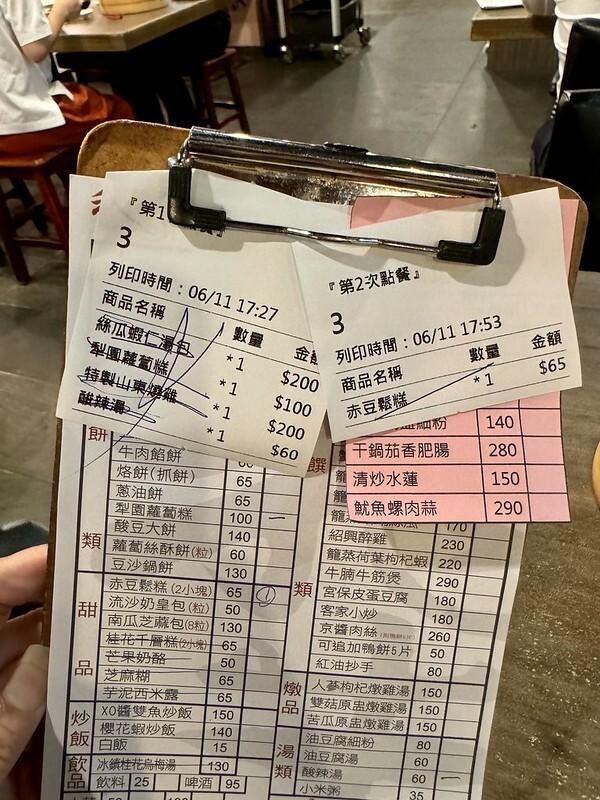 『第1
3
列印時間：06/11 17:27
商品名稱 數量 金額
絲瓜蝦仁湯包 *1 $200
梨園蘿蔔糕 *1 $100
特製山東燒雞 *1 $200
酸辣湯 *1 $60
『第2次點餐』
3
列印時間：06/11 17:53
商品名稱 數量 金額
赤豆鬆糕 *1 $65
細粉 140
干鍋茄香肥腸 280
清炒水蓮 150
魷魚螺肉蒜 290
餅類
牛肉餡餅
烙餅(抓餅) 65
蔥油餅 65
梨園蘿蔔糕 100 一
酸豆大餅 140
蘿蔔絲酥餅(粒) 60
豆沙鍋餅 130
甜品
赤豆鬆糕(2小塊) 65 ①
流沙奶皇包(粒) 50
南瓜芝麻包(8粒) 130
桂花千層糕(2小塊) 65
芒果奶酪 50
芝麻糊 65
芋泥西米露 65
炒飯
XO醬雙魚炒飯 150
櫻花蝦炒飯 140
白飯 15
飲品
冰鎮桂花烏梅湯 130
飲料 25 啤酒 95
饌類
170
紹興醉雞 230
龍蒸荷葉枸杞蝦 220
牛腩牛筋煲 290
宮保皮蛋豆腐 180
客家小炒 180
京醬肉絲 260
可追加鴨餅5片 50
紅油抄手 80
燉品
人蔘枸杞燉雞湯 150
雙菇原盅燉雞湯 150
苦瓜原盅燉雞湯 150
湯類
油豆腐細粉 80
油豆腐湯 60
酸辣湯 60 一
小米粥 35